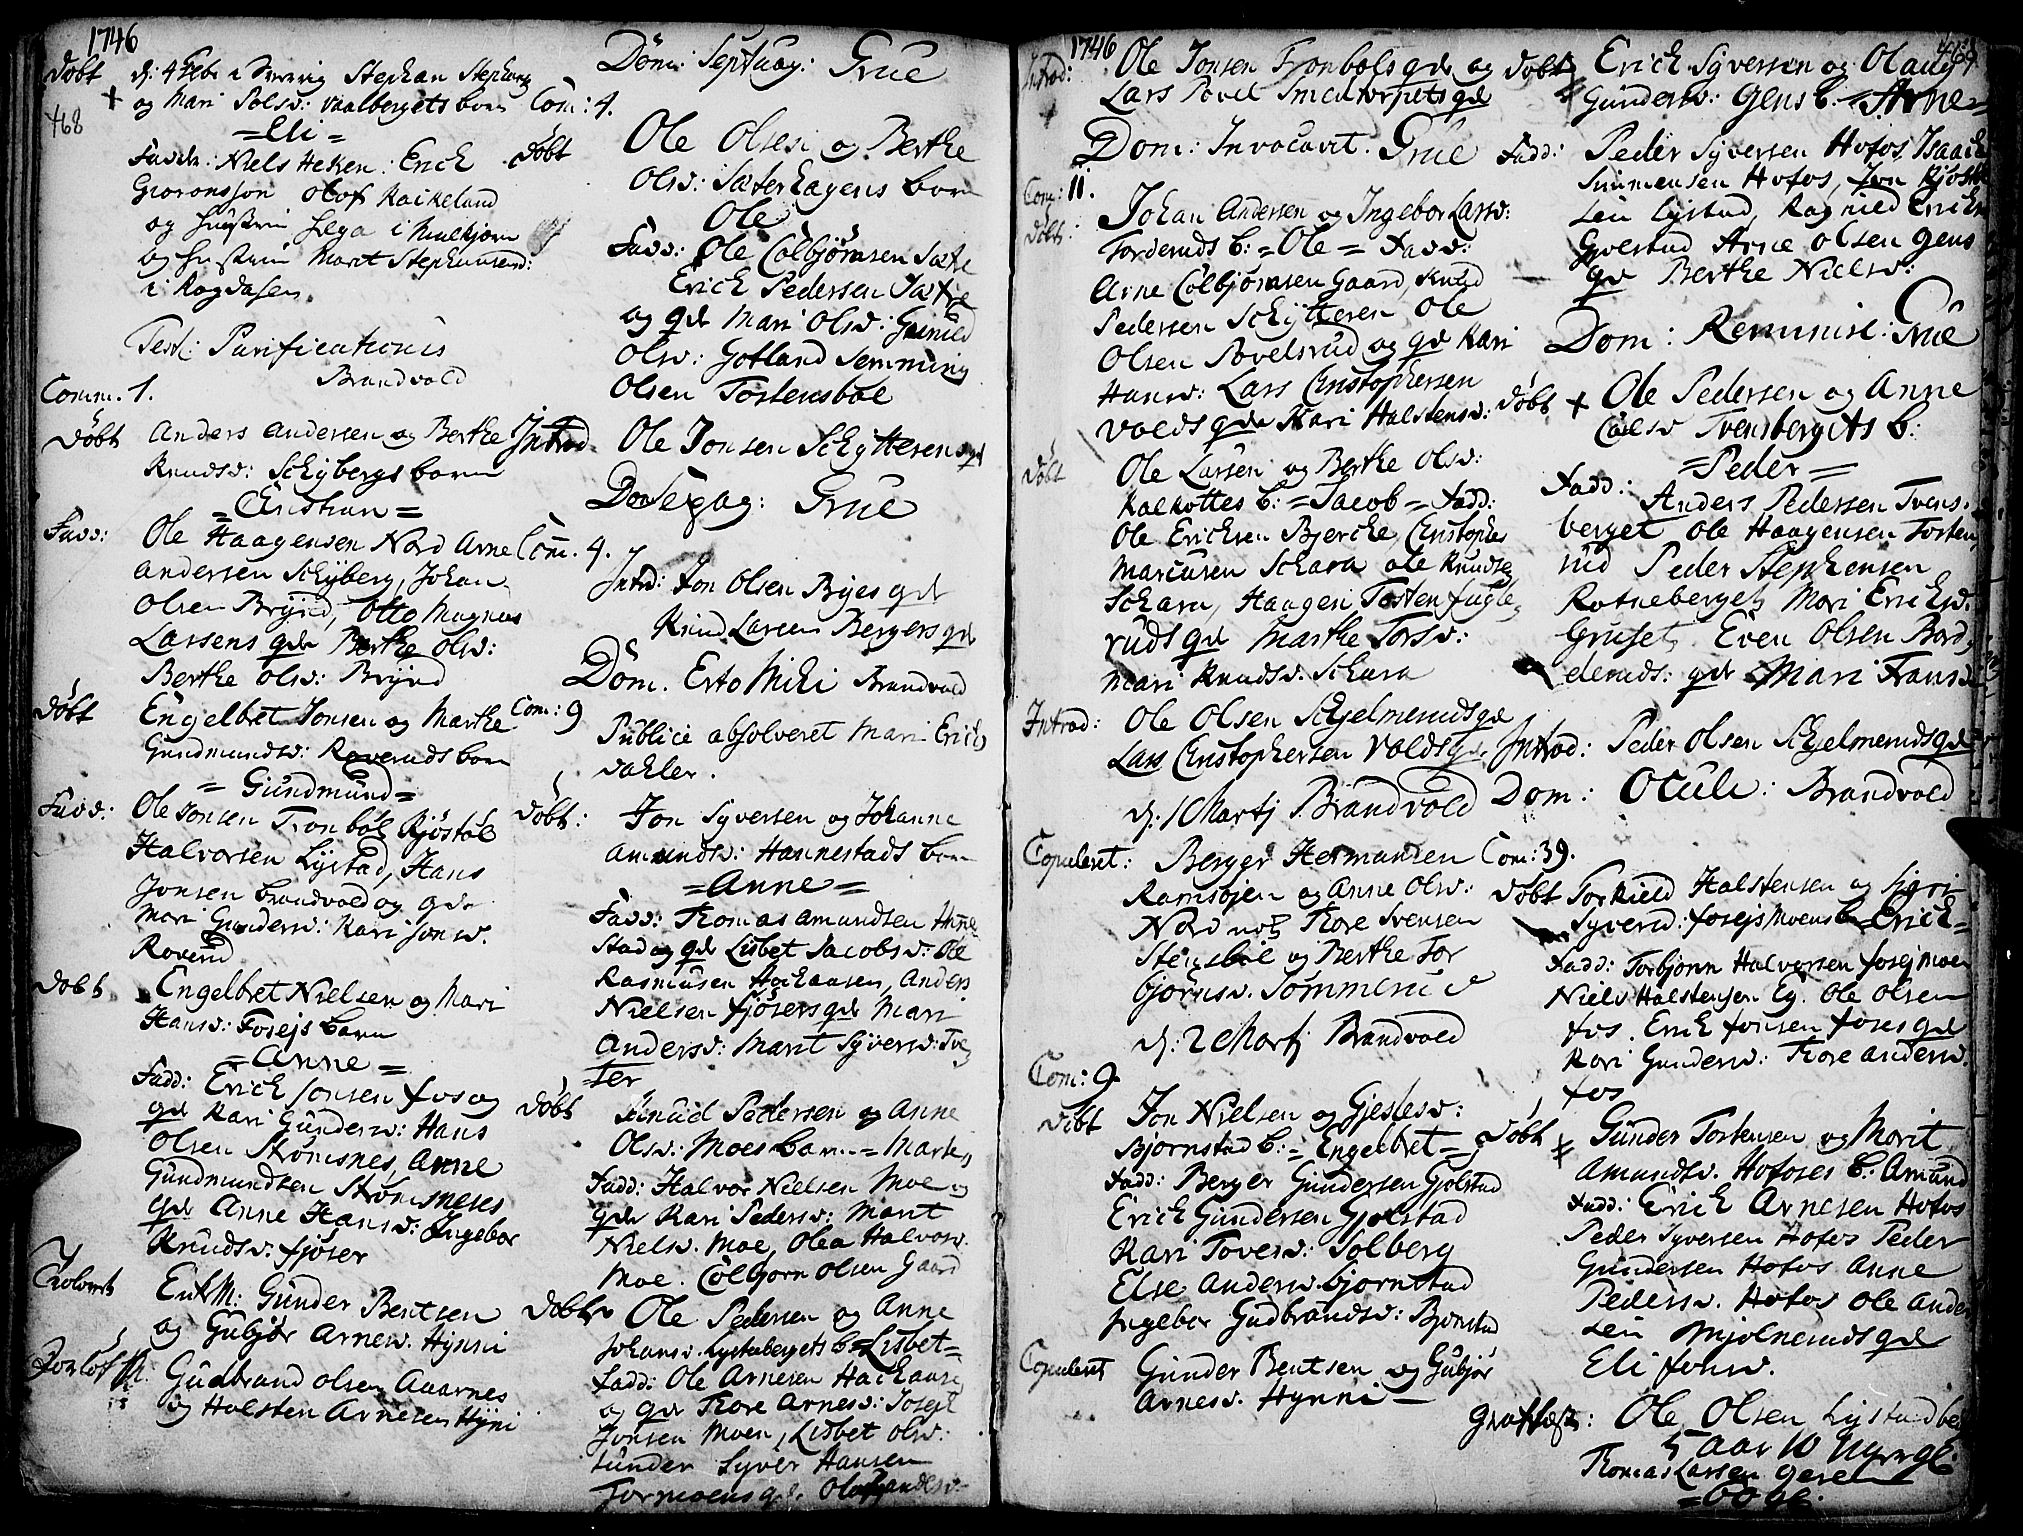 1746
468
Døbt
d: 4 Febr i Sverrig Stephan Stephans
og Mari Polsd: Vaalbergets barn
=Eli=
Fadd: Niels Heken: Erich
Giøransson Olof Kaikeland
og hustrue Helga i
og hustrue Marit Stephansd:
i Rogdasen.
Fest: Purificationis
Brandvold
Comm. 1.
Døbt Anders Andersen og Berthe
Knudsd: Schybergs barn
=Christian=
Fadd: Ole Haagensen Nord Arne
Andersen Schyberg, Johan
Olsen Bryned, Otto Magnus
Larsens qde Berthe Olsd:
Berthe Olsd: Bryned
Døbt Engelbret Jonsen og Marthe
Gundmundsd: Roveruds barn
=Gundmund=
Fadd: Ole Jonsen Tronbøl Kjøstøl
Halvorsen Lystad, Hans
Jonsen Brandvold og qde
Mari Gundersd: Kari Jonsd.
Roverud
Døbt Engelbret Nielsen og Mari
Hansd: Fosejs barn
=Anne=
Fadd: Erich Jonsen Fos og
qde Kari Gundersd: Hans
Olsen Strømsnes, Anne
Gundmundsen Strømsneses
qde Anne Hansd: Ingebor
Knudsd: Fjøser
Trolovet
Enk M: Gunder Bentsen
og Gubjør Arnesd. Hynni
Forlof M. Gudbrand Olsen Aaarnes
og Halsten Arnesen Hyni
Dom: Septuag: Grue
Com: 4.
Døbt
Ole Olsen og Berthe
Olsd: Sæterhagens barn
Ole
Fadd: Ole Colbjørnsen Sætre
Erich Pedersen Sætre
og qde Mari Olsd: Gunild
Olsd: Gotland Semming
Olsen Tostensbøl
Introd. Ole Jonsen Schytterens qde
Dom Sexag: Grue
Com. 4.
Introd: Jon Olsen Byes qde
Knud Larsen Bergers qde
Dom. Esto Mihi Brandvold
Com: 9
Publice absolveret Mari Erichs
dahler.
Døbt: Jon Syversen og Johanne
Amundsd: Hannestads barn
=Anne=
Fadd: Thomas Amundsen Hanne
stad og qde Lisbet Jacobsd: Ole
Rasmusen Hochaasen, Anders
Nielsen Fjøsers qde Mari
Andersd: Marit Syversd: Tve
ter
Døbt Knud Pedersen og Anne
Olsd: Moes barn = Marthe
Fadd: Halvor Nielsen Moe og
qde Kari Pedersd: Marit
Nielsd. Moe, Olea Halvorsd.
Moe. Colbjørn Olsen Gaard
Døbt Ole Pedersen og Anne
Johansd. Lystabergets b =Lisbet=
Fadd: Ole Arnesen Hochaasen
og qde Thore Arnesd: Joseph
Jonsen Moen, Lisbet Olsd:
Sunden Syver Hansen
Tormoens qde
1746
469
Introd: Ole Jonsen Tronbøls qde og
Lars Povel Smedtorpets qde
Dom: Invocavit. Grue
Com: 11.
Døbt: Johan Andersen og Ingebor Larsd:
Torderuds b: =Ole= Fadd:
Arne Colbjørnsen Gaard, Knud
Pedersen Schytteren Ole
Olsen Povelsrud og qde Kari
Hansd: Lars Christophersen
Volds qde Kari Halstensd:
Døbt Ole Larsen og Berthe Olsd:
Kalkottes b: =Jacob= Fadd:
Ole Erichsen Bjerche, Christopher
Marcusen Schara Ole Knudse
Schara, Haagen Tosten Fugle
ruds qde Marthe Torsd:
Mari Knudsd. Schara
Introd: Ole Olsen Schjelmeruds qde
Lars Christophersen Volds qde
d: 1 Martj Brandvold
Copuleret: Berger Hermansen
Ramsøjen og Anne Olsd:
Nord Thore Svensen
Stensbøl og Berthe Tor
bjørnsd. Sommerud
d: 2 Martj Brandvold
Com: 9.
Døbt Jon Nielsen og Gjestesd:
Bjørnstad b: =Engelbret=
Fadd: Berger Gundersen Gjølstad
Erich Gundersen Gjølstad
Kari Tovesd: Solberg
Else Andersd. Bjørnstad
Ingebor Gudbrandsd: Bjørnstad
Copuleret Gunder Bentsen og Gubjør
Arnesd. Hynni
Døbt Erich Syversen og Olaug
Gundersd: Gens b. =Arne=
Fadd: Peder Syversen Hofos, Isaach
Simmensen Hofos, Jon Kjøstel
sen Lystad, Ragnild Erichs
Gjvestad Arne Olsen Gens
qde Berthe Nielsd:
Dom: Reminisc: Grue
Døbt Ole Pedersen og Anne
Carlsd Tvensbergets b:
=Peder=
Fadd: Anders Pedersen Tvens
berget Ole Haagensen Tosten
rud Peder Stephensen
Rotneberget, Mari Erichsd.
Gruset, Even Olsen Bord
deruds qde Mari Fransd
Introd: Peder Olsen Schjelmeruds qde
Dom: Oculi: Brandvold
Com: 39.
Døbt Torkield Halstensen og Sigri
Syversd: Fosejsmoens b =Erich=
Fadd: Torbjørn Halvorsen Fosejmoen
Niels Halstensen Eg. Ole Olsen
Fos. Erich Jonsen Foses qde
Kari Gundersd: Thore Andersd.
Fos
Døbt Gunder Tostensen og Marit
Amundsd. Hofoses b. Amund
Fadd: Erich Arnesen Hofos
Peder Syversen Hofos Peder
Gundersen Hofos Anne
Pedersd. Hofos Ole Ander
sen Mjølneruds qde
Eli Jonsd.
Graffæst: Ole Olsen Lystadbe
5 Aar 10 Uger gl:
Thomas Larsen
=60 gl.